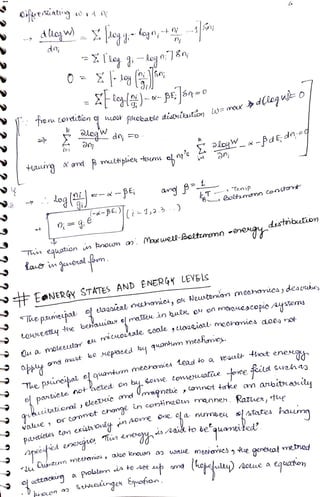 Differentiating w.r.t. ni
→ d(log w) = Σ [log gi - log ni + ni/ni - 1] δni
dni
= Σ [log gi - log ni] δni
0 = Σ [-log (ni/gi)] δni
= Σ[-log(ni/gi) - α - βEi] δni = 0
from condition of most probable distribution W = max → d(log w) = 0
⇒ Σ ∂logW/∂ni dni = 0
taking α and β multiplier terms of ni's Σ ∂logW/∂ni - α - βdEi dni = 0
→ ∴ log[ni/gi] = -α - βEi and β = 1/kT → Temp
Boltzmann constant
ni = gi e^(-α-βEi) (i = 1,2,3 ...)
This equation is known as Maxwell-Boltzmann energy distribution
law in general form.
# ENERGY STATES AND ENERGY LEVELS
The principal of classical mechanics, or Newtonian mechanics, describe,
correctly the behaviour of matter in bulk or on macroscopic systems
On a molecular or microscale scale, classical mechanics does not
apply and must be replaced by quantum mechanics.
The principal of quantum mechanics lead to a result that energy
of particle not acted on by some conservative force field such as
gravitational, electric and magnetic, cannot take on arbitrarily
value, or cannot change in continuous manner. Rather, the
particles can exist only in some one of a number of states having
specified energies. This energy is said to be quantized.
Quantum mechanics, also known as wave mechanics, the general method
of attacking a problem is to set up and (hopefully) solve a equation
known as Schrodinger Equation.